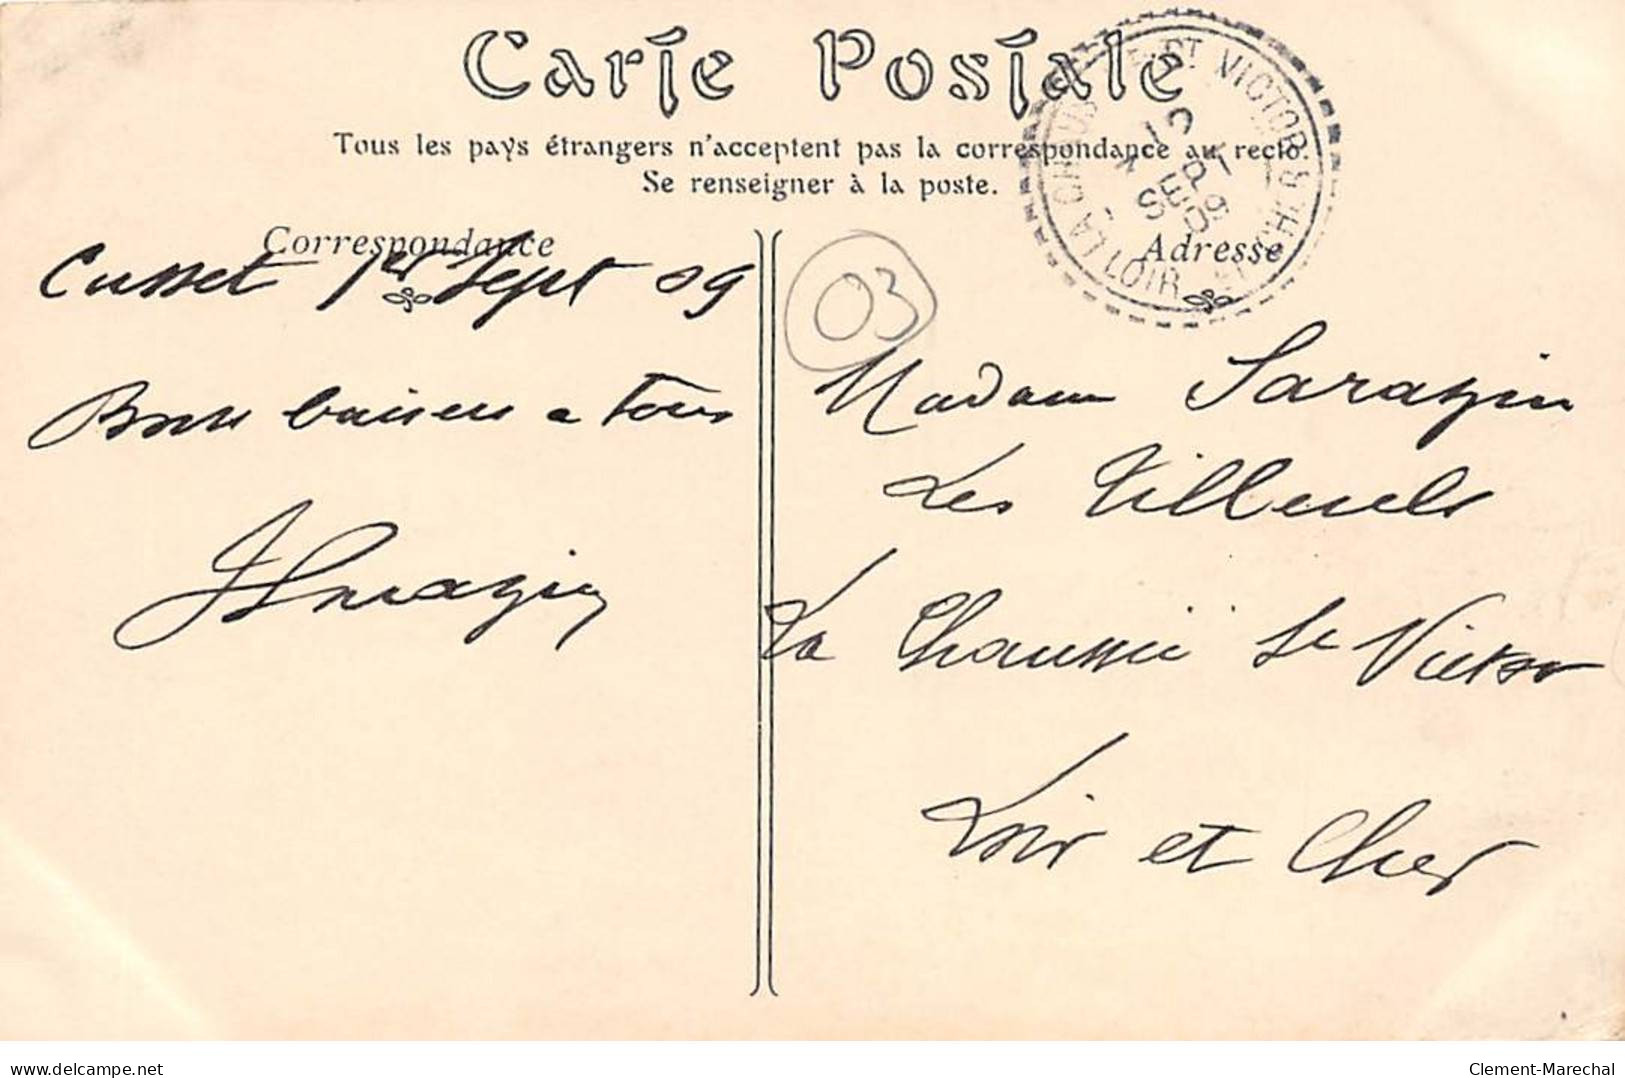 Carte Postale
Tous les pays étrangers n'acceptent pas la correspondance au recto.
Se renseigner à la poste.
Correspondance
Adresse
LA CHAUSSÉE ST VICTOR
LOIR ET CHER
SEPT
09
03
Cusset 1er Sept 09
Bons baisers a tous
Sarazin
Madame Sarazin
Les Tilleuls
La Chaussée St Victor
Loir et Cher
www.delcampe.net
Clement-Marechal